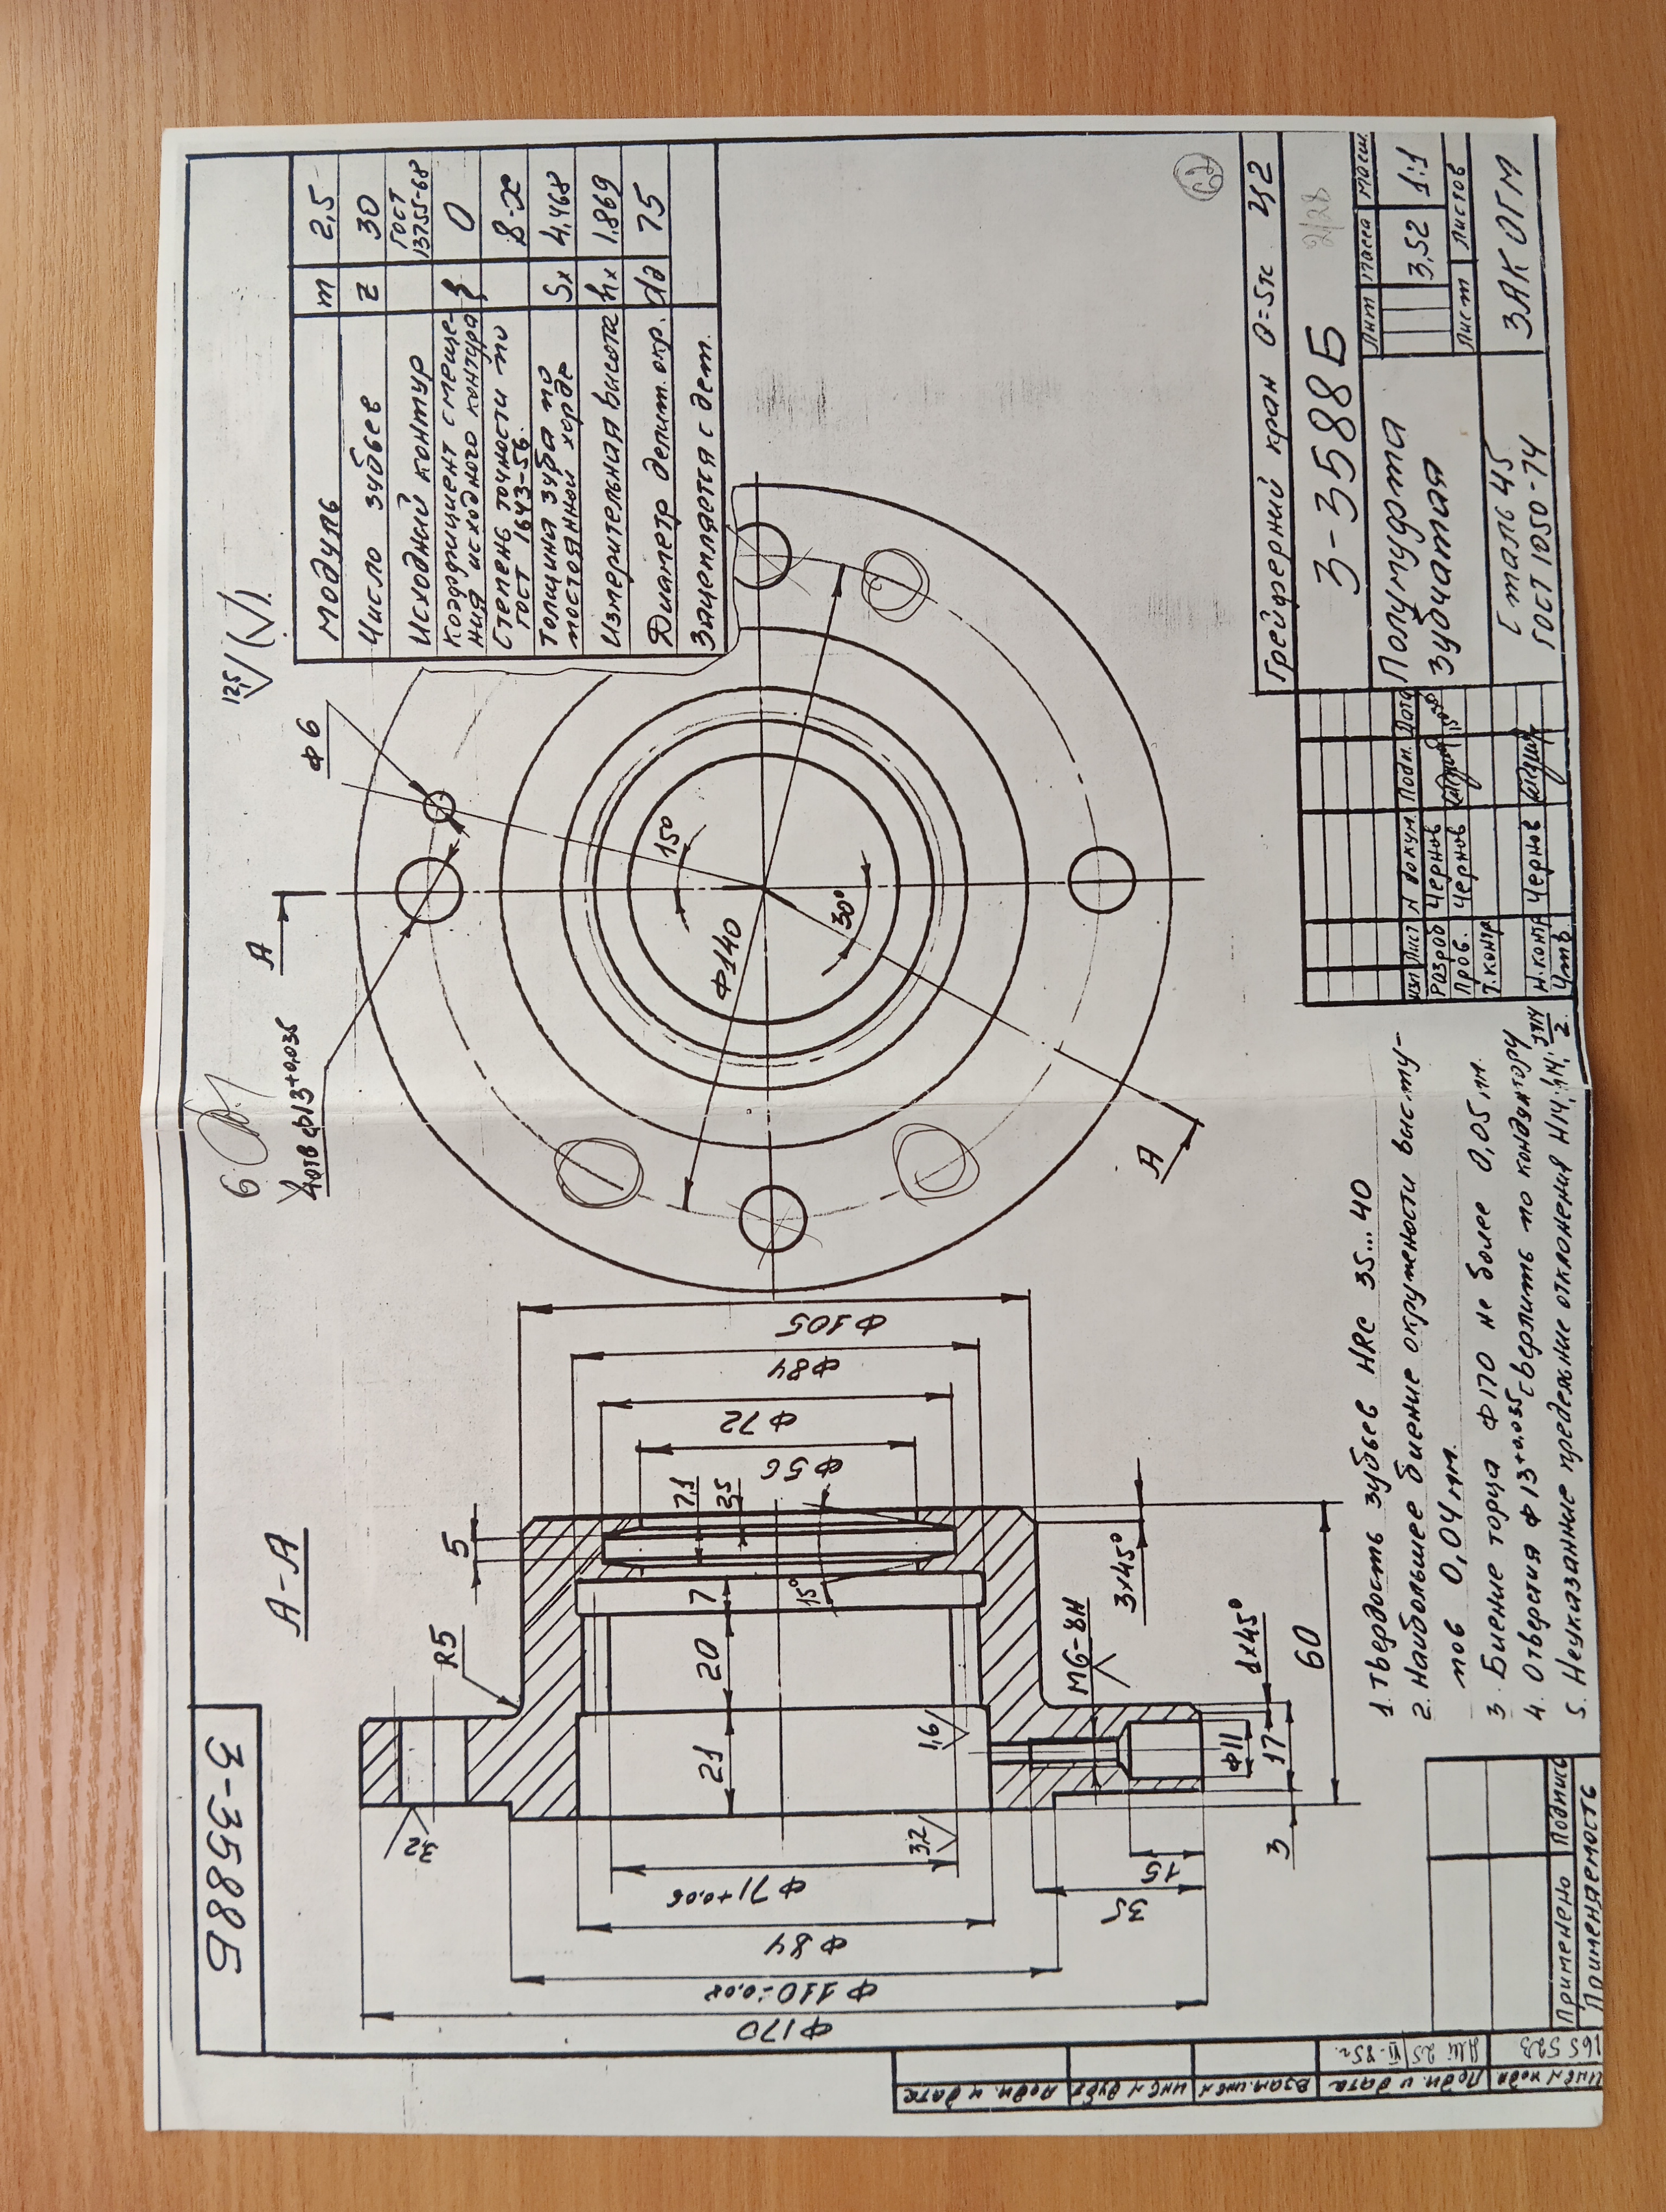 3-3588Б
А-А
R5
5
Ф170
Ф110-0,08
Ф84
Ф71+0.06
32
3.2
21
20
7
1,6
15°
7.1
2.5
Ф56
Ф72
Ф84
Ф105
М6-8Н
3х45°
1х45°
Ф11
17
3
60
15
35
6
4отв ф13+0.035
А
Ф6
15°
30°
Ф140
А
12,5
Модуль m 2,5
Число зубьев z 30
Исходный контур ГОСТ 13755-68
Коэффициент смеще-
ния исходного контура ξ 0
Степень точности по
ГОСТ 1643-56 8-х
Толщина зуба по
постоянной хорде Sх 4,468
Измерительная высота hх 1.869
Диаметр делит. окр. dд 75
Зацепляется с дет.
62
1. Твердость зубьев HRC 35...40
2. Наибольшее биение окружности высту-
пов 0,04 мм.
3. Биение торца Ф170 не более 0,05 мм.
4. Отверстия Ф13+0.035 сверлить по кондуктору
5. Неуказанние предежние отклонения Н14, h14, JT14/2.
Грейферний кран Q=5тс Ц2
3-3588Б
2/28
Полумуфта
зубчатая
Лит Масса Масш.
3,52 1:1
Лист Листов
Сталь 45
ГОСТ 1050-74
ЗАК ОГМ
Изм Лист N докум. Подп. Дата
Разроб Чернов
Пров. Чернов
Т.контр
Н.контр Чернов
Утв.
Применено Подпись
Применяемость
Подп. и дата
Инв N дубл
Взам.инв N
Подп. и дата
25/VI-85г.
Инв N подл
165523